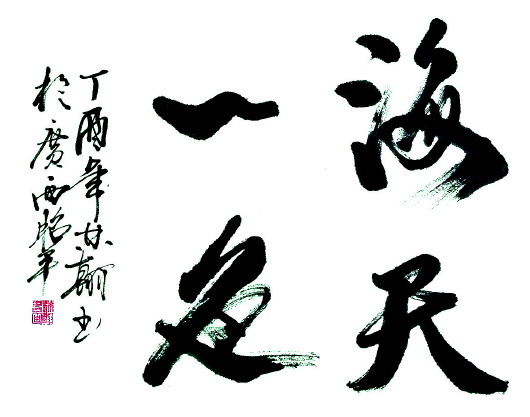 海天
一色
丁酉年甘书
於廣西昭平